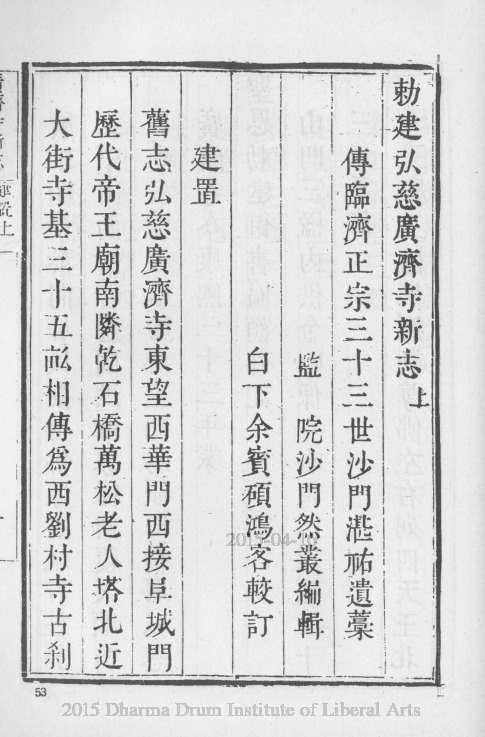 勅建弘慈廣濟寺新志上
傳臨濟正宗三十三世沙門湛祐遺藁
監院沙門然叢編輯
白下余賓碩鴻客較訂
建置
舊志弘慈廣濟寺東望西華門西接阜城門
歷代帝王廟南隣乾石橋萬松老人塔北近
大街寺基三十五畝相傳爲西劉村寺古刹
53
2015 Dharma Drum Institute of Liberal Arts